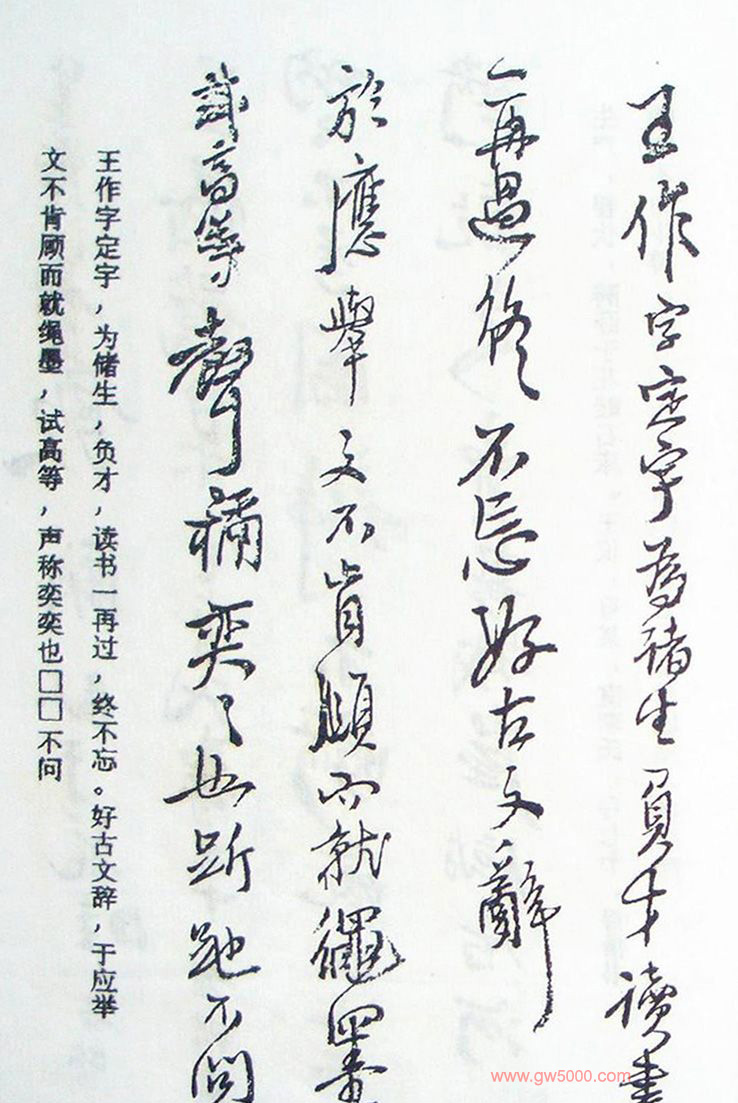 王作字定宇為諸生負才讀書
一再過終不忘好古文辭
於應舉文不肯顧而就繩墨
試高等聲稱奕〻也跅弛不問
王作字定字，为储生，负才，读书一再过，终不忘。好古文辞，于应举
文不肯顾而就绳墨，试高等，声称奕奕也□□不问
www.gw5000.com